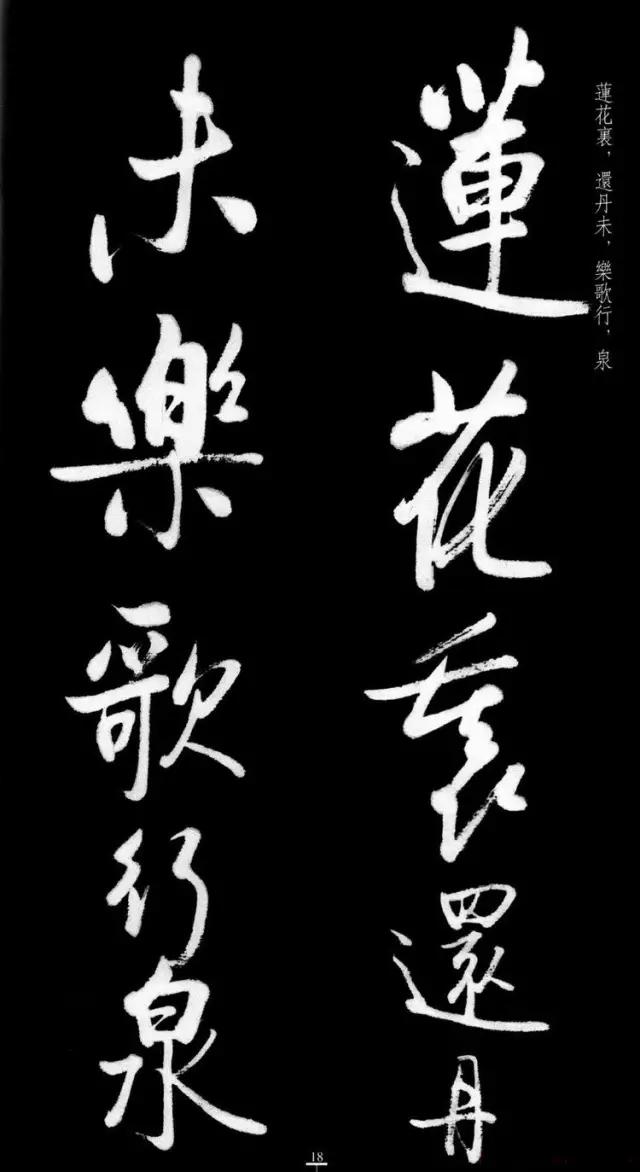 蓮花裏，還丹未，樂歌行，泉
蓮花裏還丹
未樂歌行泉
18